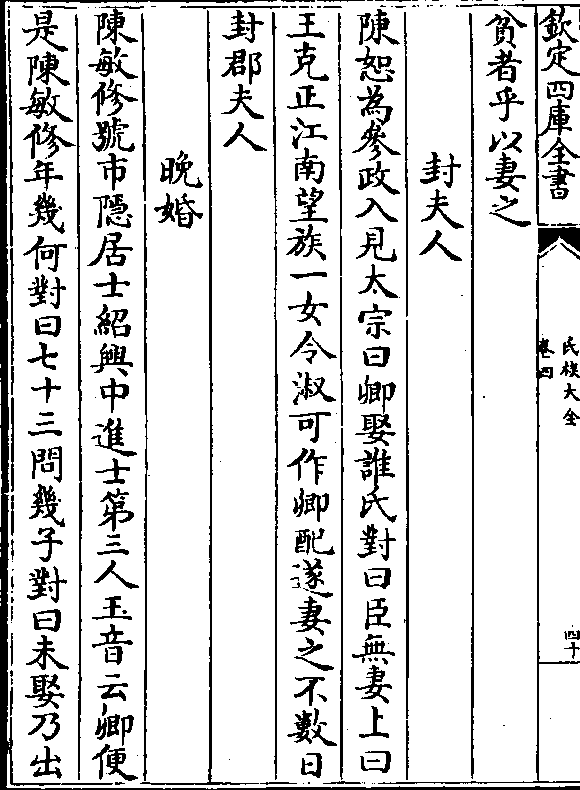 欽定四庫全書
氏族大全
卷四
四十
貧者乎以妻之
封夫人
陳恕為參政入見太宗曰卿娶誰氏對曰臣無妻上曰
王克正江南望族一女令淑可作卿配遂妻之不數日
封郡夫人
晚婚
陳敏修號市隱居士紹興中進士第三人玉音云卿便
是陳敏修年幾何對曰七十三問幾子對曰未娶乃出